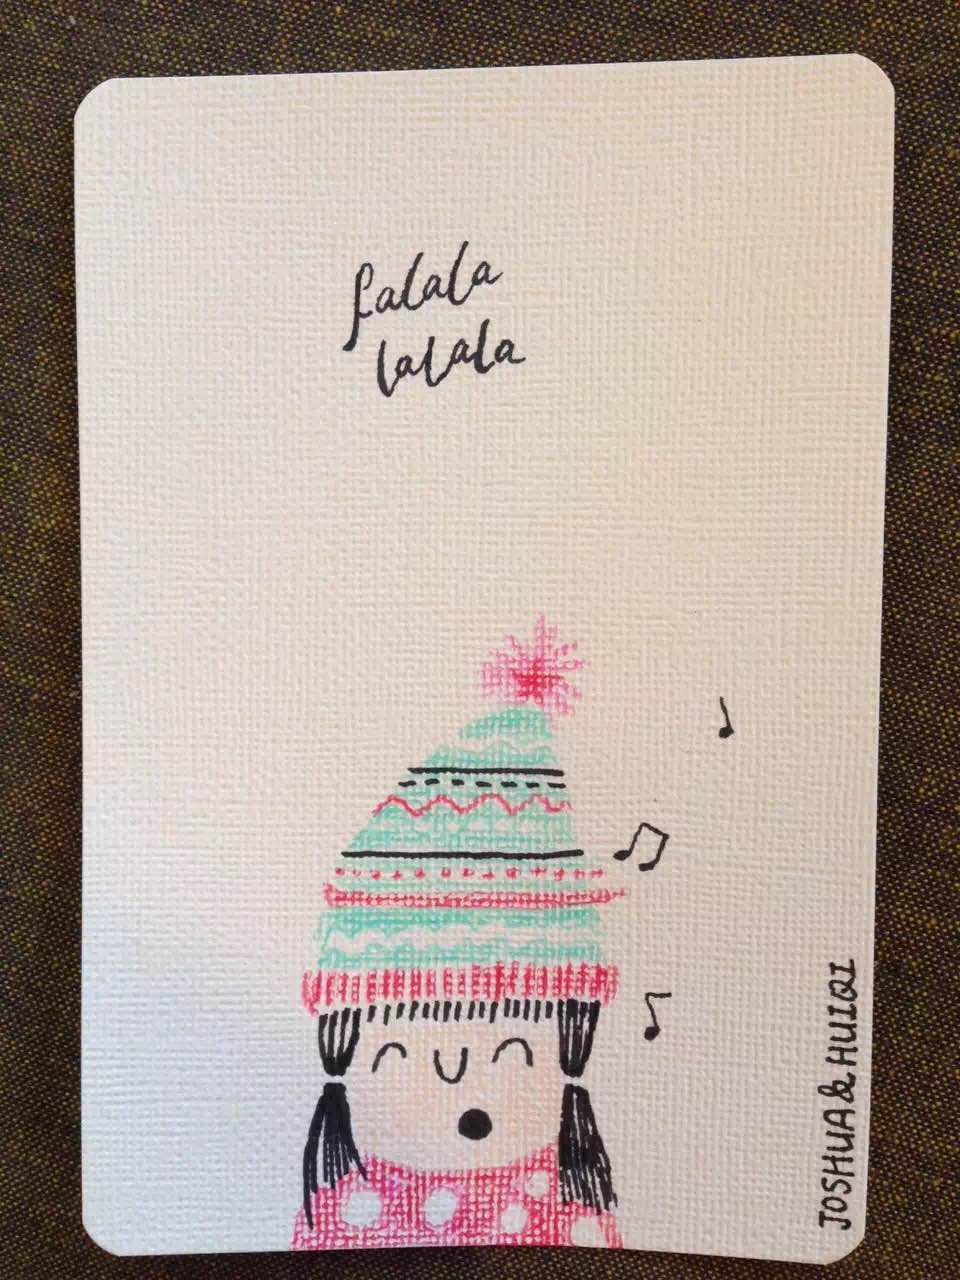 falala
lalala
JOSHUA & HUIQI